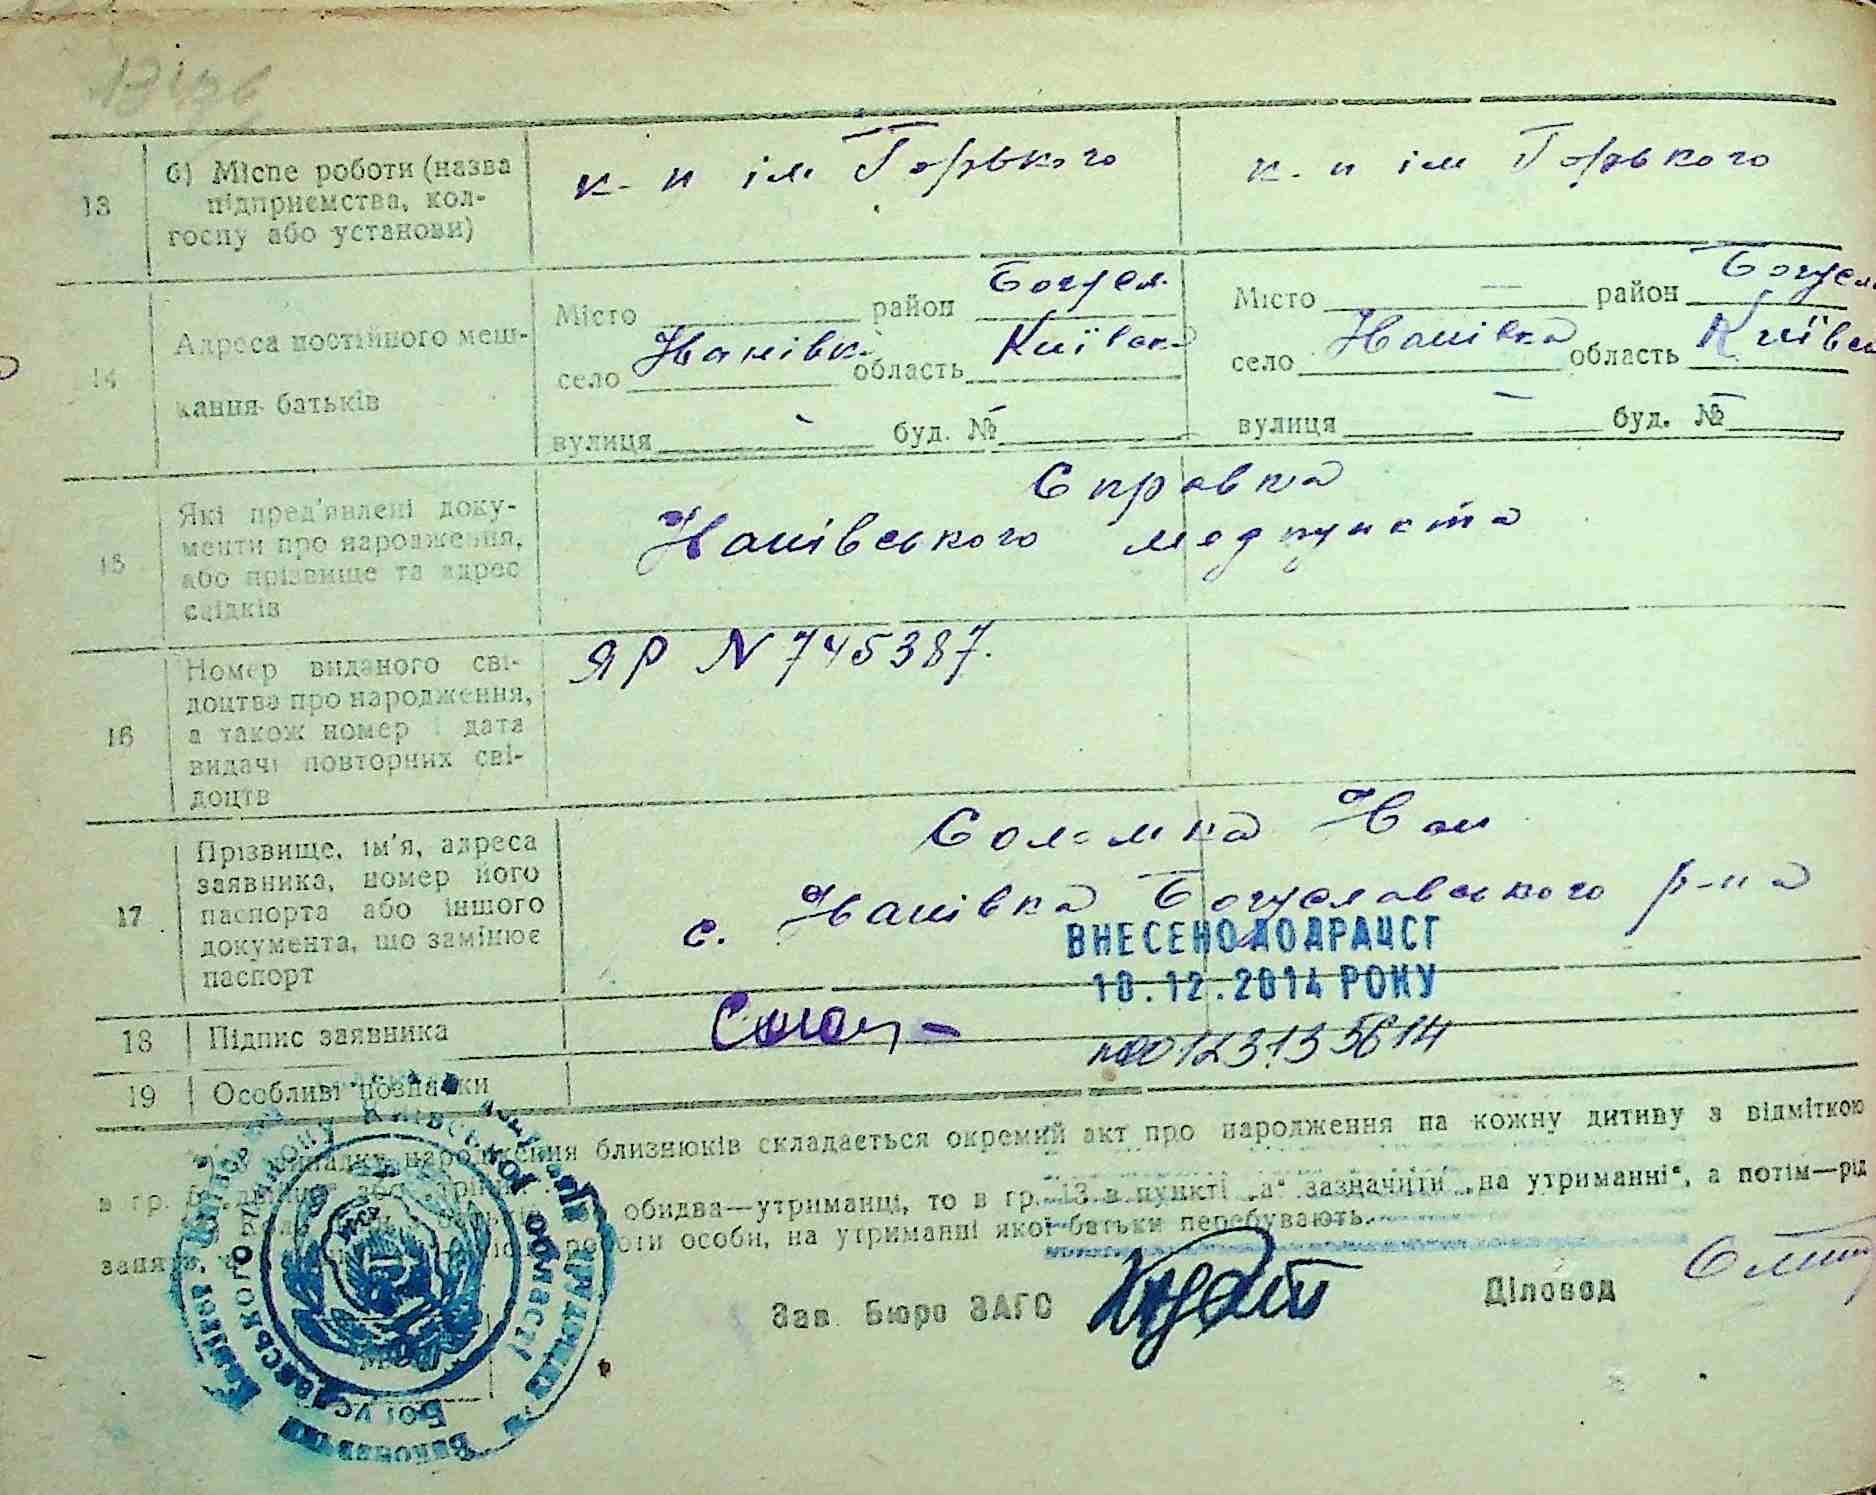 13
б) Місце роботи (назва
підприємства, кол-
госпу або установи)
к-п ім Горького
к-п ім Горького
14
Адреса постійного меш-
кання батьків
Місто район Богусл.
село область Київськ
вулиця буд. №
Місто — район Богусл
село область Київсь
вулиця — буд. №
15
Які пред'явлені доку-
менти про народження,
або прізвище та адрес
свідків
Справка
медпункта
16
Номер виданого сві-
доцтва про народження,
а також номер і дата
видачі повторних сві-
доцтв
ЯР N 745387.
17
Прізвище, ім'я, адреса
заявника, номер його
паспорта або іншого
документа, що замінює
паспорт
Соломка
с. Богуславського р-на
ВНЕСЕНО ДО ДРАЦСГ
10.12.2014 РОКУ
18
Підпис заявника
№00123135614
19
Особливі познаки
випадку народження близнюків складається окремий акт про народження на кожну дитину з відміткою
в гр.
обидва—утриманці, то в гр. 13 в пункті „а" зазначити „на утриманні", а потім—рід
занять, роботи особи, на утриманні якої батьки перебувають.
Зав. Бюро ЗАГС
Діловод
Богуславського району Київської області